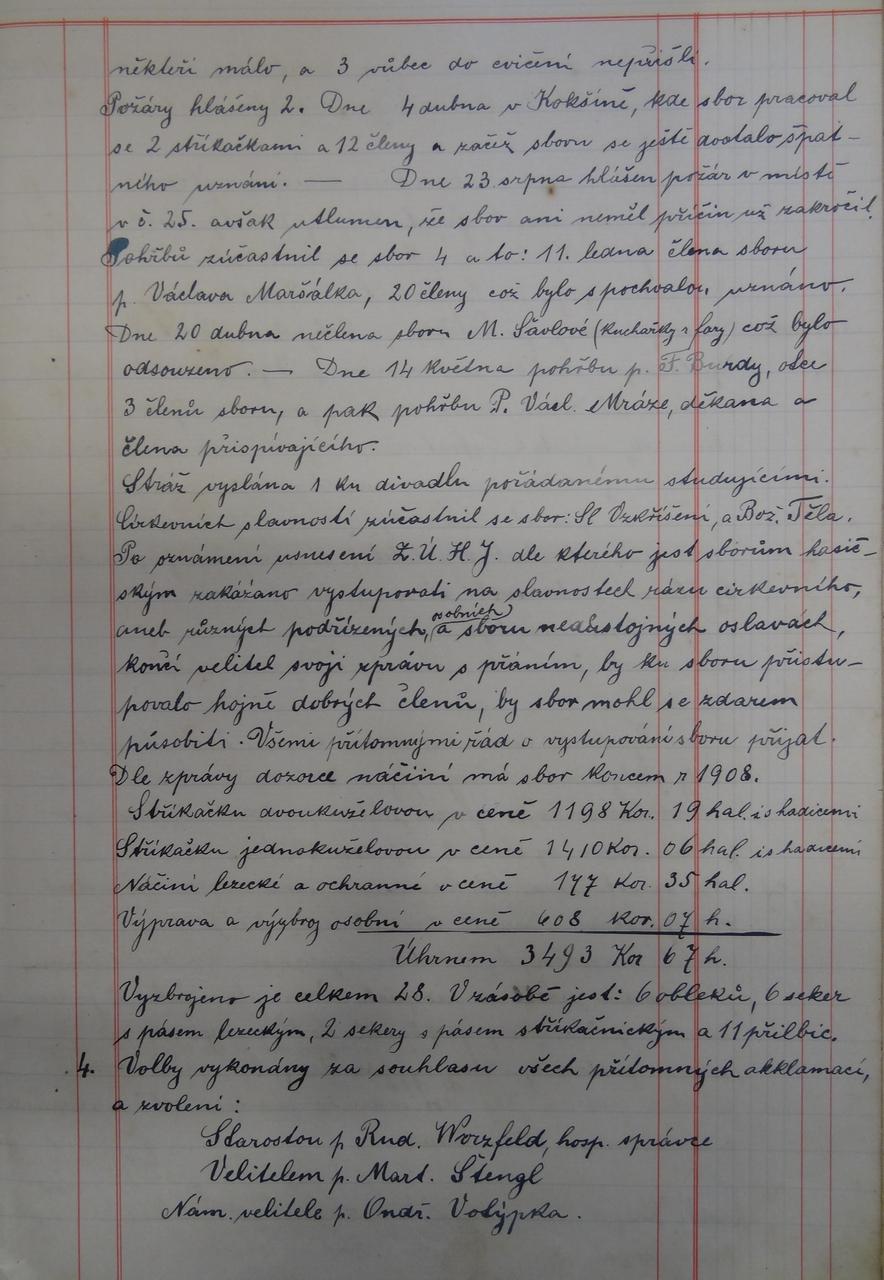 někteří málo, a 3 vůbec do cvičení nepřišli.
Požáry hlášeny 2. Dne 4 dubna v Kokšíně, kde sbor pracoval
se 2 stříkačkami a 12 členy a začež sboru se ještě dostalo špat-
ného uznání. — Dne 23 srpna hlášen požár v místě
v č. 25. avšak utlumen, že sbor ani neměl příčin už zakročil.
Pohřbů zúčastnil se sbor 4 a to: 11. ledna člena sboru
p. Václava Maršálka, 20 členy což bylo s pochvalou uznáno.
Dne 20 dubna nečlena sboru M. Šavlové (kuchařky z fary) což bylo
odsouzeno. — Dne 14 května pohřbu p. F. Burdy, otce
3 členů sboru, a pak pohřbu P. Václ. Mráze, děkana a
člena přispívajícího.
Stráž vyslána 1 ku divadlu pořádanému studujícími.
Církevních slavností zúčastnil se sbor: Sl Vzkříšení, a Bož. Těla.
Po oznámení usnesení Z.Ú.H.J. dle kterého jest sborům hasič-
ským zakázáno vystupovati na slavnostech rázu církevního,
aneb různých podřízených, osobních a sboru nedůstojných oslavách,
končí velitel svoji zprávu s přáním, by ku sboru přistu-
povalo hojně dobrých členů, by sbor mohl se zdarem
působiti. Všemi přítomnými řád o vystupování sboru přijat.
Dle zprávy dozorce náčiní má sbor koncem r 1908.
Stříkačku dvoukuželovou v ceně 1198 Kor. 19 hal. i s hadicemi
Stříkačku jednokuželovou v ceně 1410 Kor. 06 hal. i s hadicemi
Náčiní lezecké a ochranné v ceně 177 Kor. 35 hal.
Výprava a výzbroj osobní v ceně 608 kor. 07 h.
Úhrnem 3493 Kor 67 h.
Vyzbrojeno je celkem 28. V zásobě jest: 6 obleků, 6 seker
s pásem lezeckým, 2 sekery s pásem stříkačnickým a 11 přilbic.
4. Volby vykonány za souhlasu všech přítomných akklamací,
a zvoleni:
Starostou p Rud. Worzfeld, hosp. správce
Velitelem p. Mart. Štengl
Nám. velitele p. Ondř. Votýpka.